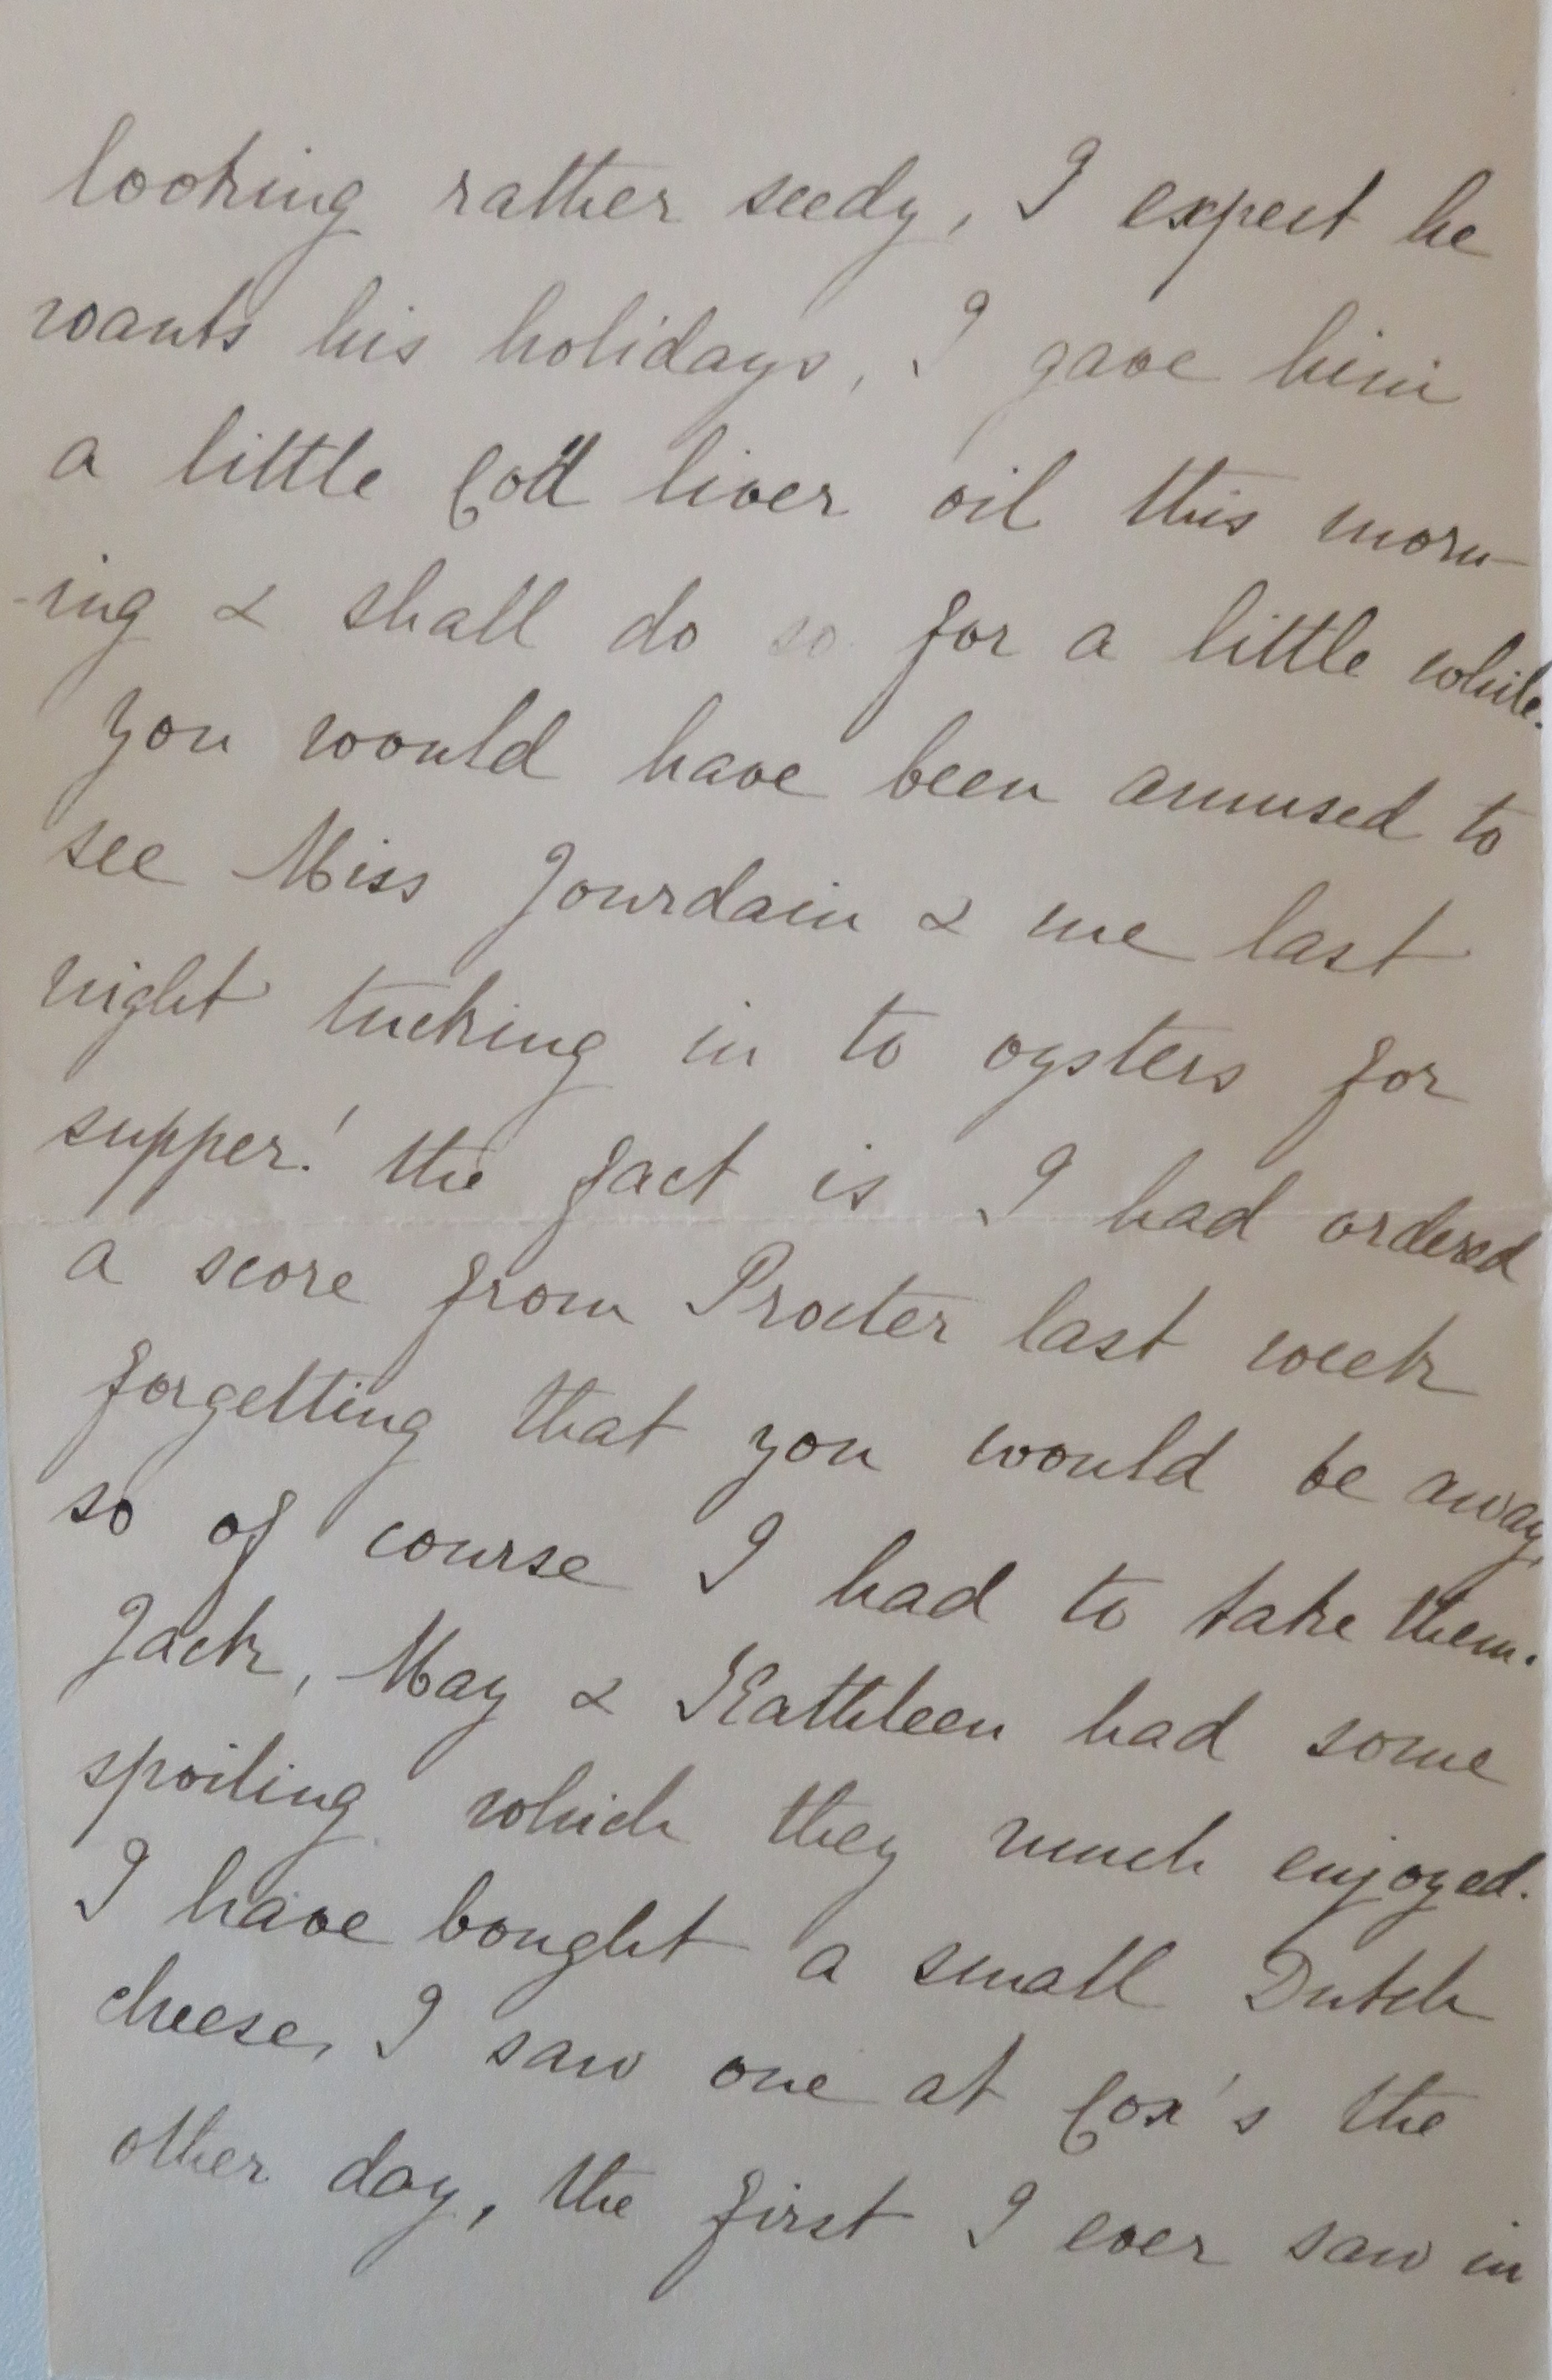 looking rather seedy, I expect he
wants his holidays, I gave him
a little Cod liver oil this morn-
-ing & shall do so for a little while.
you would have been amused to
see Miss Jourdain & me last
night tucking in to oysters for
supper! the fact is I had ordered
a score from Procter last week
forgetting that you would be away,
so of course I had to take them.
Jack, May & Kathleen had some
spoiling which they much enjoyed.
I have bought a small Dutch
cheese, I saw one at Cox's the
other day, the first I ever saw in